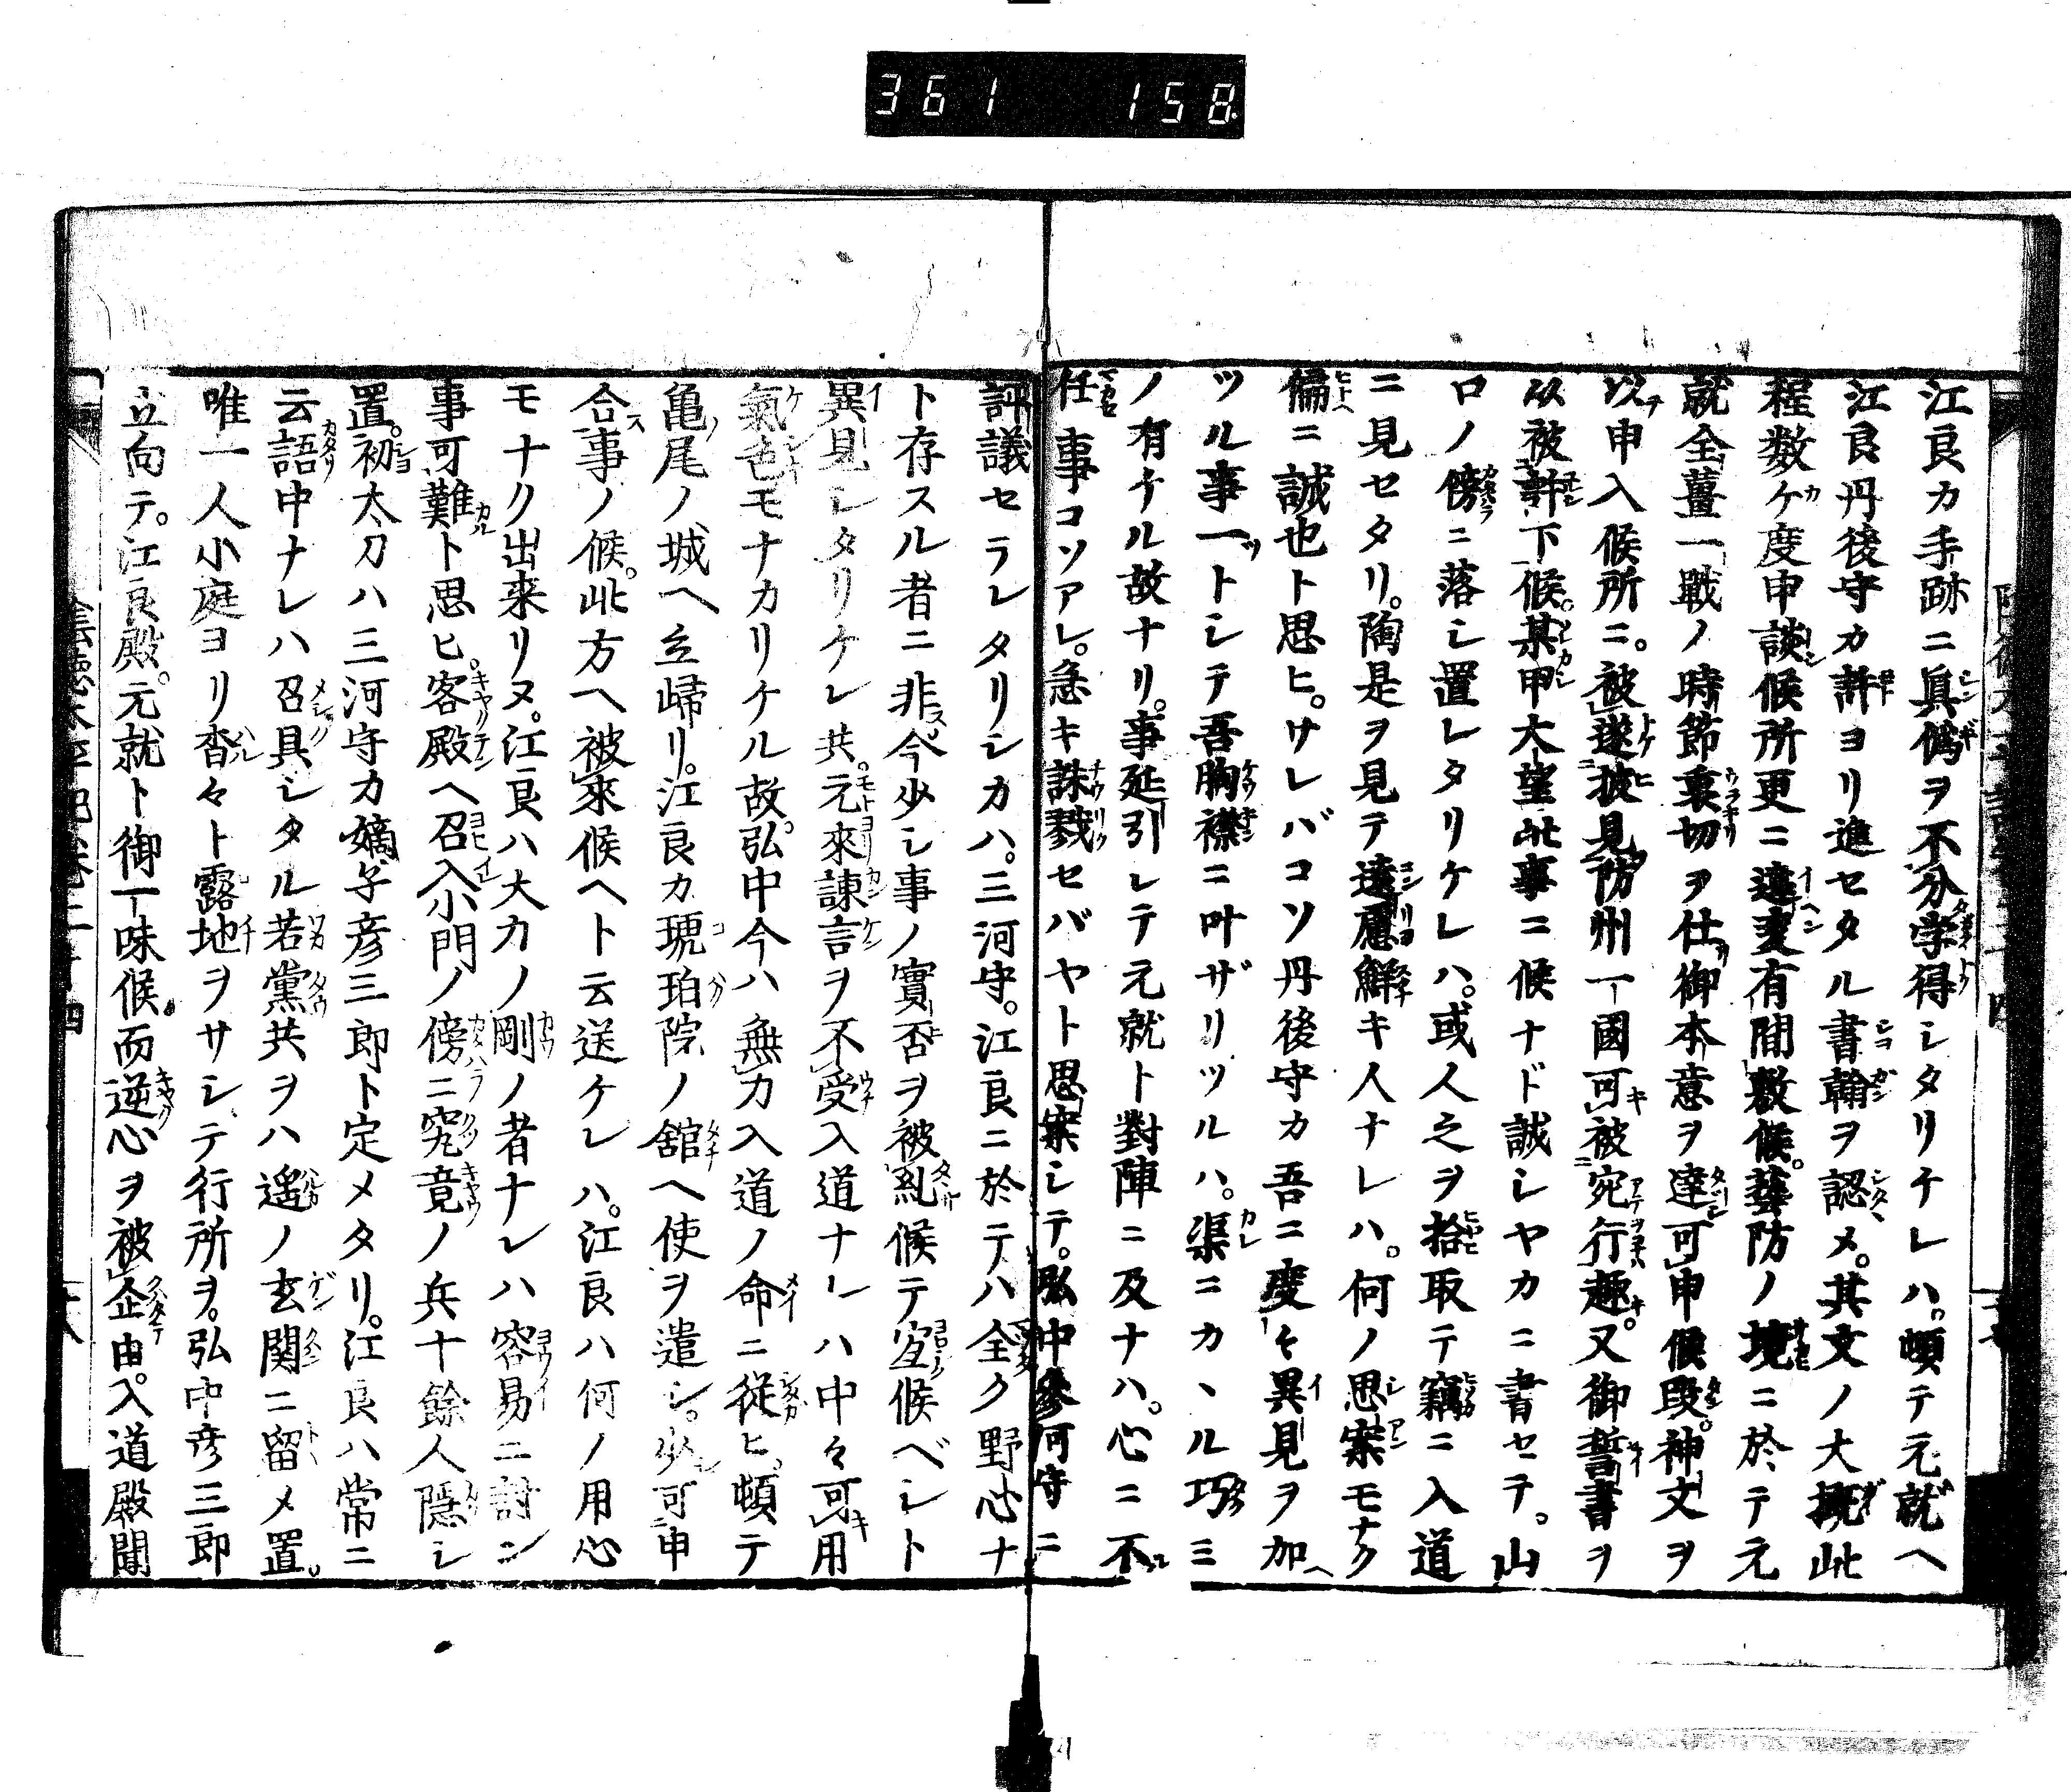 361 158
江良カ手跡ニ眞偽ヲ不分学得シタリケレハ。頓テ元就ヘ
江良丹後守カ許ヨリ進セタル書翰ヲ認メ。其文ノ大概此
程数ケ度申談候所更ニ違変有間敷候。藝防ノ境ニ於テ元
就全薑一戰ノ時節裏切ヲ仕御本意ヲ達可申候段。神文ヲ
以申入候所ニ。被遂披見防州一國可被宛行趣。又御誓書ヲ
以被許下候。某甲大望此事ニ候ナド誠シヤカニ書セテ。山
口ノ傍ニ落シ置レタリケレハ。或人之ヲ拾取テ竊ニ入道
ニ見セタリ。陶是ヲ見テ遠慮鮮キ人ナレハ。何ノ思案モナク
偏ニ誠也ト思ヒ。サレバコソ丹後守カ吾ニ度々異見ヲ加
ツル事一トシテ吾胸襟ニ叶ザリツルハ。渠ニカヽル巧ミ
ノ有ケル故ナリ。事延引シテ元就ト對陣ニ及ナハ。心ニ不
任事コソアレ。急キ誅戮セバヤト思案シテ。弘中參河守ニ
評議セラレタリシカハ。三河守。江良ニ於テハ全ク野心ナ
ト存スル者ニ非ス。今少シ事ノ實否ヲ被糺候テ宜候ベシト
異見シタリケレ共。元來諌言ヲ不受入道ナレハ中々可用
氣色モナカリケル故。弘中今ハ無力入道ノ命ニ従ヒ。頓テ
亀尾ノ城ヘ立歸リ。江良カ琥珀院ノ舘ヘ使ヲ遣シ。少可申
合事ノ候。此方ヘ被來候ヘト云送ケレハ。江良ハ何ノ用心
モナク出来リヌ。江良ハ大力ノ剛ノ者ナレハ容易ニ討ン
事可難ト思ヒ。客殿ヘ召入小門ノ傍ニ究竟ノ兵十餘人隠シ
置。初太刀ハ三河守カ嫡子彦三郎ト定メタリ。江良ハ常ニ
云語中ナレハ召具シタル若黨共ヲハ遥ノ玄関ニ留メ置。
唯一人小庭ヨリ沓々ト露地ヲサシテ行所ヲ。弘中彦三郎
立向テ。江良殿。元就ト御一味候而逆心ヲ被企由。入道殿聞